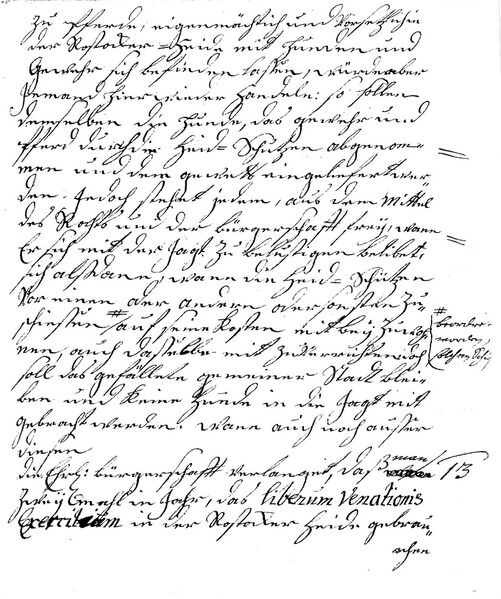 zu Pferde, eigenmächtich und Vorsetzlich in
der Rostocker=Heide mit Hunden und
Gewehr sich befinden lassen, würde aber
Jemand hierwieder handeln: so sollen
demselben die Hunde, das gewehr und
Pferd durch die Heid=Schützen abgenom=
men und dem gewett eingeliefert wer=
den. Jedoch stehet jedem, aus dem Mittel
des Rahts und der bürgerschafft frey, wann
Er sich mit der Jagt zu belustigen belibet,
sich alßdann, wann die Heid=Schützen
Vor einen oder andern oder sonsten zu
schiessen # auf seine Kosten mit bey zuwoh
nen, auch dasselbe mit zu Verrichten, doch
soll das gefällete gemeiner Stadt blei=
ben und keine Hunde in die Jagt mit
gebracht werden. Wann auch noch ausser
diesen
die Ehrl: bürgerschafft verlanget, daß man
zwey Mahl in Jahr, das liberum Venationis
Exercitium in der Rostocker Heide gebrau=
chen
#
beordert
worden,
13